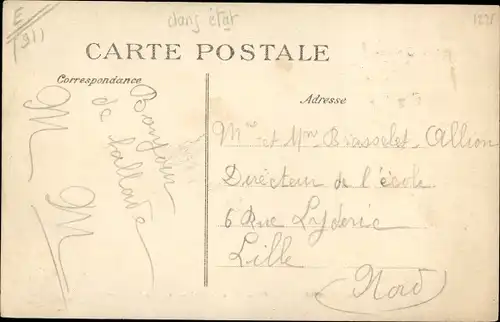 E
1911
dans état
CARTE POSTALE
Correspondance
Adresse
Bonjour
de
M
M
Mr et Mme Brasselet-Allion
Directeur de l'école
6 Rue Lyderic
Lille
Nord